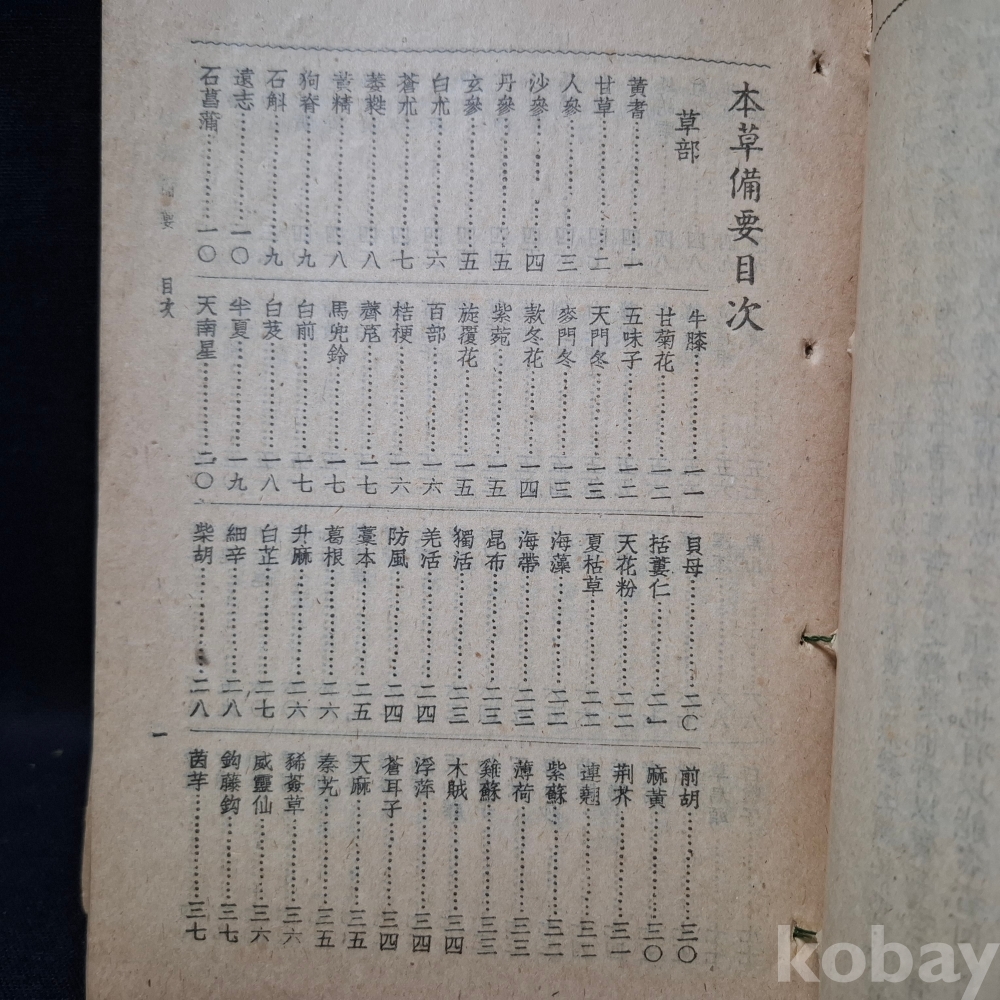 本草備要目次
草部
黃耆 一
甘草 二
人參 三
沙參 四
丹參 五
玄參 五
白朮 六
蒼朮 七
萎蕤 八
黃精 八
狗脊 九
石斛 九
遠志 一〇
石菖蒲 一〇
牛膝 一一
甘菊花 一二
五味子 一二
天門冬 一三
麥門冬 一三
款冬花 一四
紫菀 一五
旋覆花 一五
百部 一六
桔梗 一六
薺苨 一七
馬兜鈴 一七
白前 一七
白芨 一八
半夏 一九
天南星 二〇
貝母 二〇
括蔞仁 二一
天花粉 二二
夏枯草 二二
海藻 二二
海帶 二三
昆布 二三
獨活 二三
羌活 二四
防風 二四
藁本 二五
葛根 二六
升麻 二六
白芷 二七
細辛 二八
柴胡 二八
前胡 三〇
麻黃 三〇
荆芥 三一
連翹 三二
紫蘇 三二
薄荷 三三
雞蘇 三三
木賊 三四
浮萍 三四
蒼耳子 三四
天麻 三五
秦艽 三五
豨薟草 三六
威靈仙 三六
鈎藤鈎 三七
茵芋 三七
要 目次
一
kobay